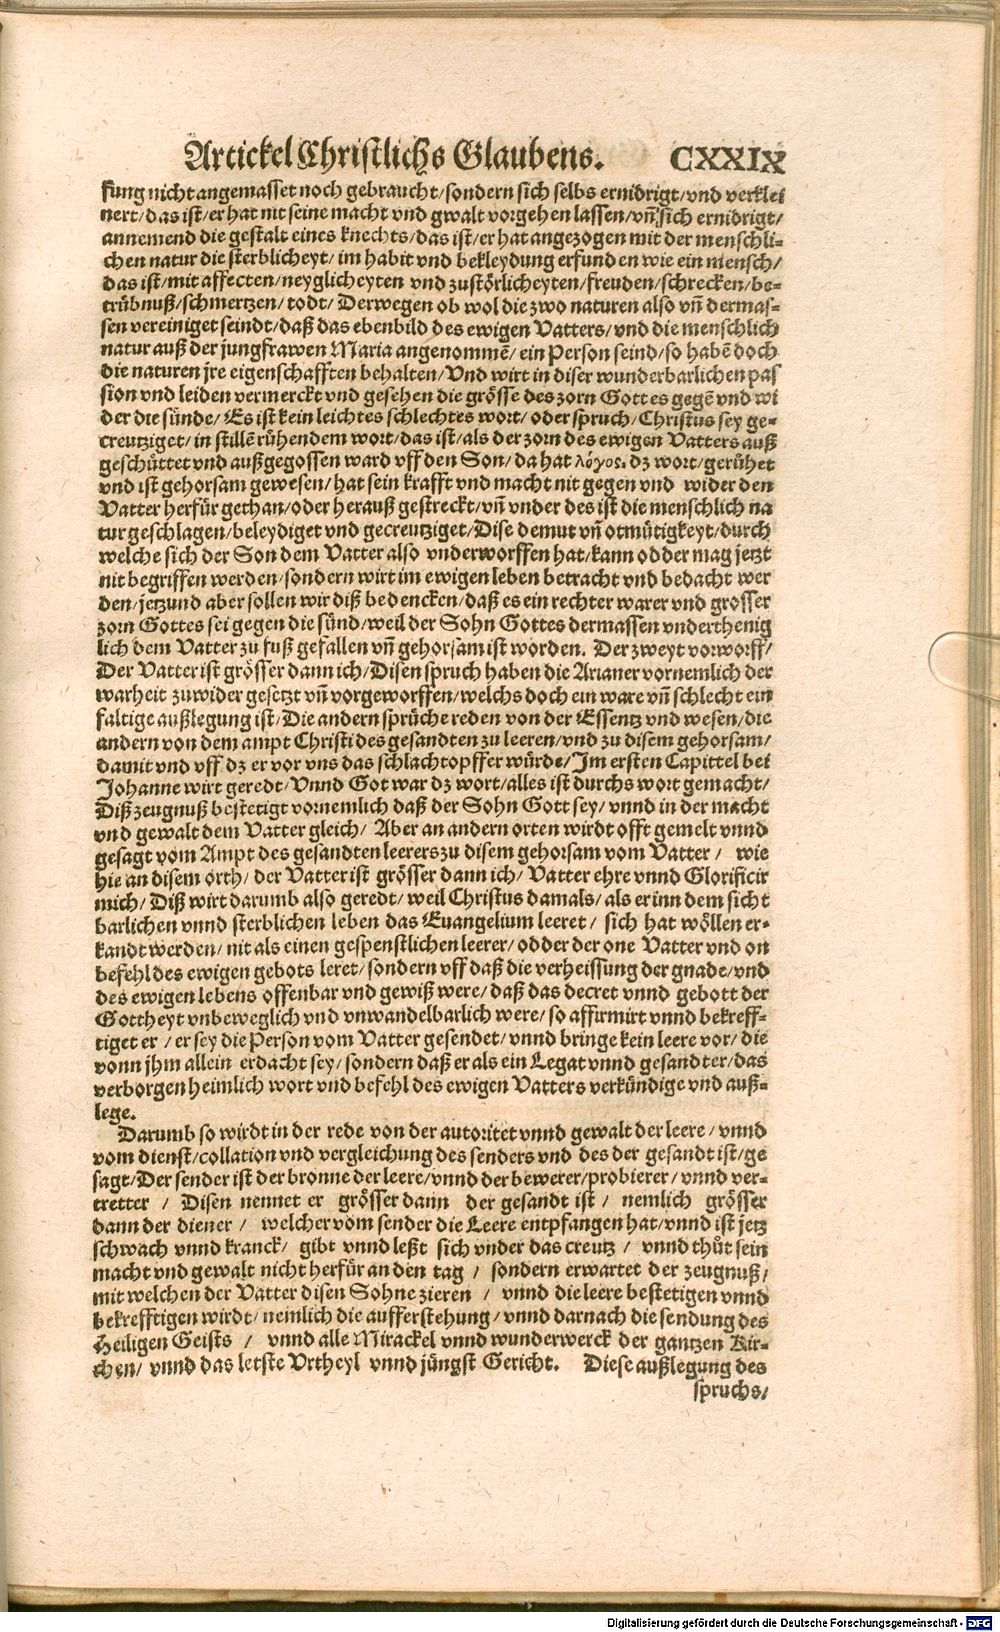 Artickel Christlichs Glaubens. CXXIX
fung nicht angemasset noch gebraucht/sondern sich selbs ernidrigt/vnd verklei
nert/das ist/er hat nit seine macht vnd gwalt vorgehen lassen/vñ sich ernidrigt/
annemend die gestalt eines knechts/das ist/er hat angezogen mit der menschli-
chen natur die sterblicheyt/ im habit vnd bekleydung erfunden wie ein mensch/
das ist/mit affecten/neyglicheyten vnd zustörlicheyten/freuden/schrecken/be-
trübnuß/schmertzen/ todt/ Derwegen ob wol die zwo naturen also vñ dermas-
sen vereiniget seindt/daß das ebenbild des ewigen Vatters/vnd die menschlich
natur auß der jungfrawen Maria angenommē/ ein Person seind/so habē doch
die naturen jre eigenschafften behalten/Vnd wirt in diser wunderbarlichen pas
sion vnd leiden vermerckt vnd gesehen die grösse des zorn Gottes gegē vnd wi
der die sünde/ Es ist kein leichtes schlechtes wort/ oder spruch/Christus sey ge-
creutziget/in stillē rühendem wort/das ist/als der zorn des ewigen Vatters auß
geschüttet vnd außgegossen ward vff den Son/da hat λόγος. dz wort/gerühet
vnd ist gehorsam gewesen/hat sein krafft vnd macht nit gegen vnd wider den
Vatter herfür gethan/oder herauß gestreckt/vñ vnder des ist die menschlich na
tur geschlagen/beleydiget vnd gecreutziget/Dise demut vñ otmütigkeyt/durch
welche sich der Son dem Vatter also vnderworffen hat/kann odder mag jetzt
nit begriffen werden/sondern wirt im ewigen leben betracht vnd bedacht wer
den/jetzund aber sollen wir diß bedencken/daß es ein rechter warer vnd grosser
zorn Gottes sei gegen die sünd/weil der Sohn Gottes dermassen vnderthenig
lich dem Vatter zu fuß gefallen vñ gehorsam ist worden. Der zweyt vorworff/
Der Vatter ist grösser dann ich/Disen spruch haben die Arianer vornemlich der
warheit zuwider gesetzt vñ vorgeworffen/welchs doch ein ware vñ schlecht ein
faltige außlegung ist/Die andern sprüche reden von der Essentz vnd wesen/die
andern von dem ampt Christi des gesandten zu leeren/vnd zu disem gehorsam/
damit vnd vff dz er vor vns das schlachtopffer würde/Im ersten Capittel bei
Johanne wirt geredt/Vnnd Got war dz wort/alles ist durchs wort gemacht/
Diß zeugnuß bestetigt vornemlich daß der Sohn Gott sey/vnnd in der macht
vnd gewalt dem Vatter gleich/ Aber an andern orten wirdt offt gemelt vnnd
gesagt vom Ampt des gesandten leerers zu disem gehorsam vom Vatter/ wie
hie an disem orth/ der Vatter ist grösser dann ich/ Vatter ehre vnnd Glorificir
mich/ Diß wirt darumb also geredt/weil Christus damals/als er inn dem sicht
barlichen vnnd sterblichen leben das Euangelium leeret/ sich hat wöllen er-
kandt werden/nit als einen gespenstlichen leerer/odder der one Vatter vnd on
befehl des ewigen gebots leret/sondern vff daß die verheissung der gnade/vnd
des ewigen lebens offenbar vnd gewiß were/daß das decret vnnd gebott der
Gottheyt vnbeweglich vnd vnwandelbarlich were/so affirmirt vnnd bekreff-
tiget er/er sey die Person vom Vatter gesendet/vnnd bringe kein leere vor/die
vonn jhm allein erdacht sey/sondern daß er als ein Legat vnnd gesandter/das
verborgen heimlich wort vnd befehl des ewigen Vatters verkündige vnd auß-
lege.
Darumb so wirdt in der rede von der autoritet vnnd gewalt der leere/vnnd
vom dienst/collation vnd vergleichung des senders vnd des der gesandt ist/ge
sagt/Der sender ist der bronne der leere/vnnd der bewerer/probierer/vnnd ver-
tretter / Disen nennet er grösser dann der gesandt ist/ nemlich grösser
dann der diener/ welcher vom sender die Leere entpfangen hat/vnnd ist jetz
schwach vnnd kranck/ gibt vnnd leßt sich vnder das creutz/ vnnd thüt sein
macht vnd gewalt nicht herfür an den tag/ sondern erwartet der zeugnuß/
mit welchen der Vatter disen Sohne zieren / vnnd die leere bestetigen vnnd
bekrefftigen wirdt/nemlich die aufferstehung/vnnd darnach die sendung des
Heiligen Geists / vnnd alle Mirackel vnnd wunderwerck der gantzen Kir-
chen/ vnnd das letste Vrtheyl vnnd jüngst Gericht. Diese außlegung des
spruchs/
Digitalisierung gefördert durch die Deutsche Forschungsgemeinschaft - DFG